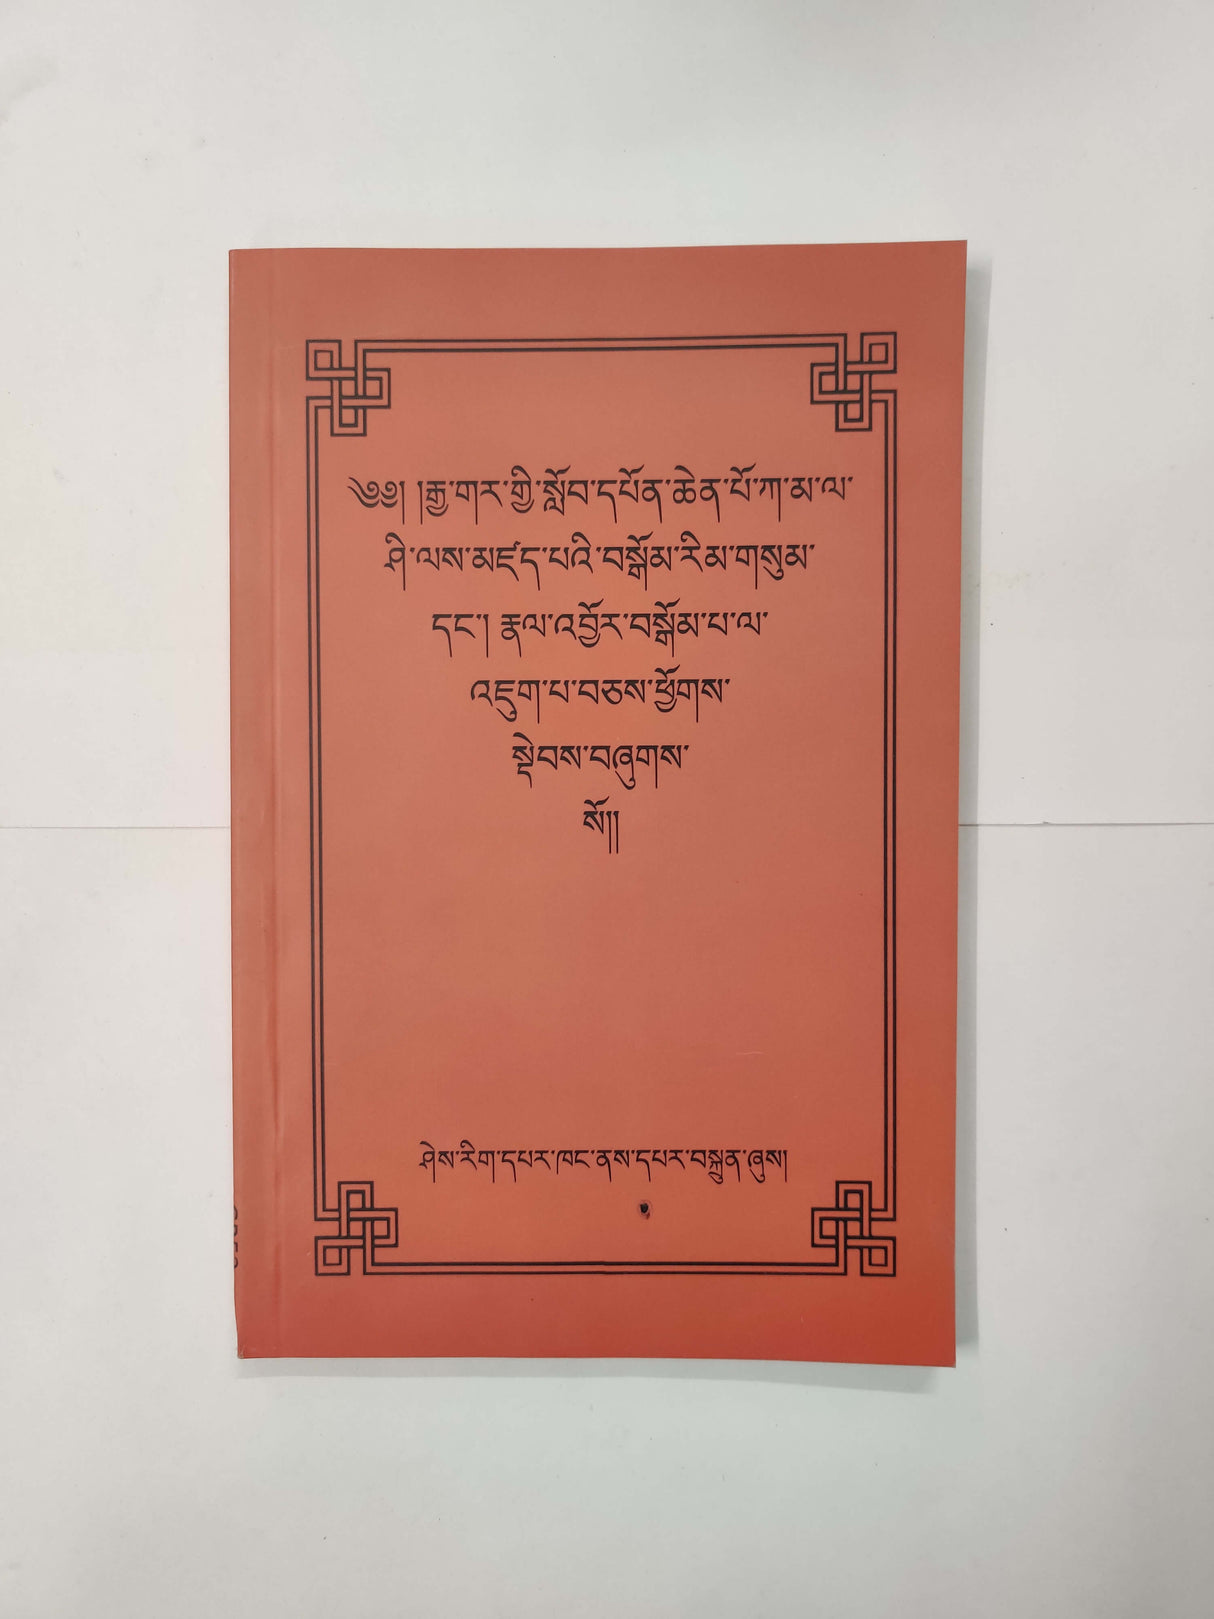 ༄༅། །རྒྱ་གར་གྱི་སློབ་དཔོན་ཆེན་པོ་ཀ་མ་ལ་
ཤི་ལས་མཛད་པའི་བསྒོམ་རིམ་གསུམ་
དང་། རྣལ་འབྱོར་བསྒོམ་པ་ལ་
འཇུག་པ་བཅས་ཕྱོགས་
སྡེབས་བཞུགས་
སོ།།
ཤེས་རིག་དཔར་ཁང་ནས་དཔར་བསྐྲུན་ཞུས།